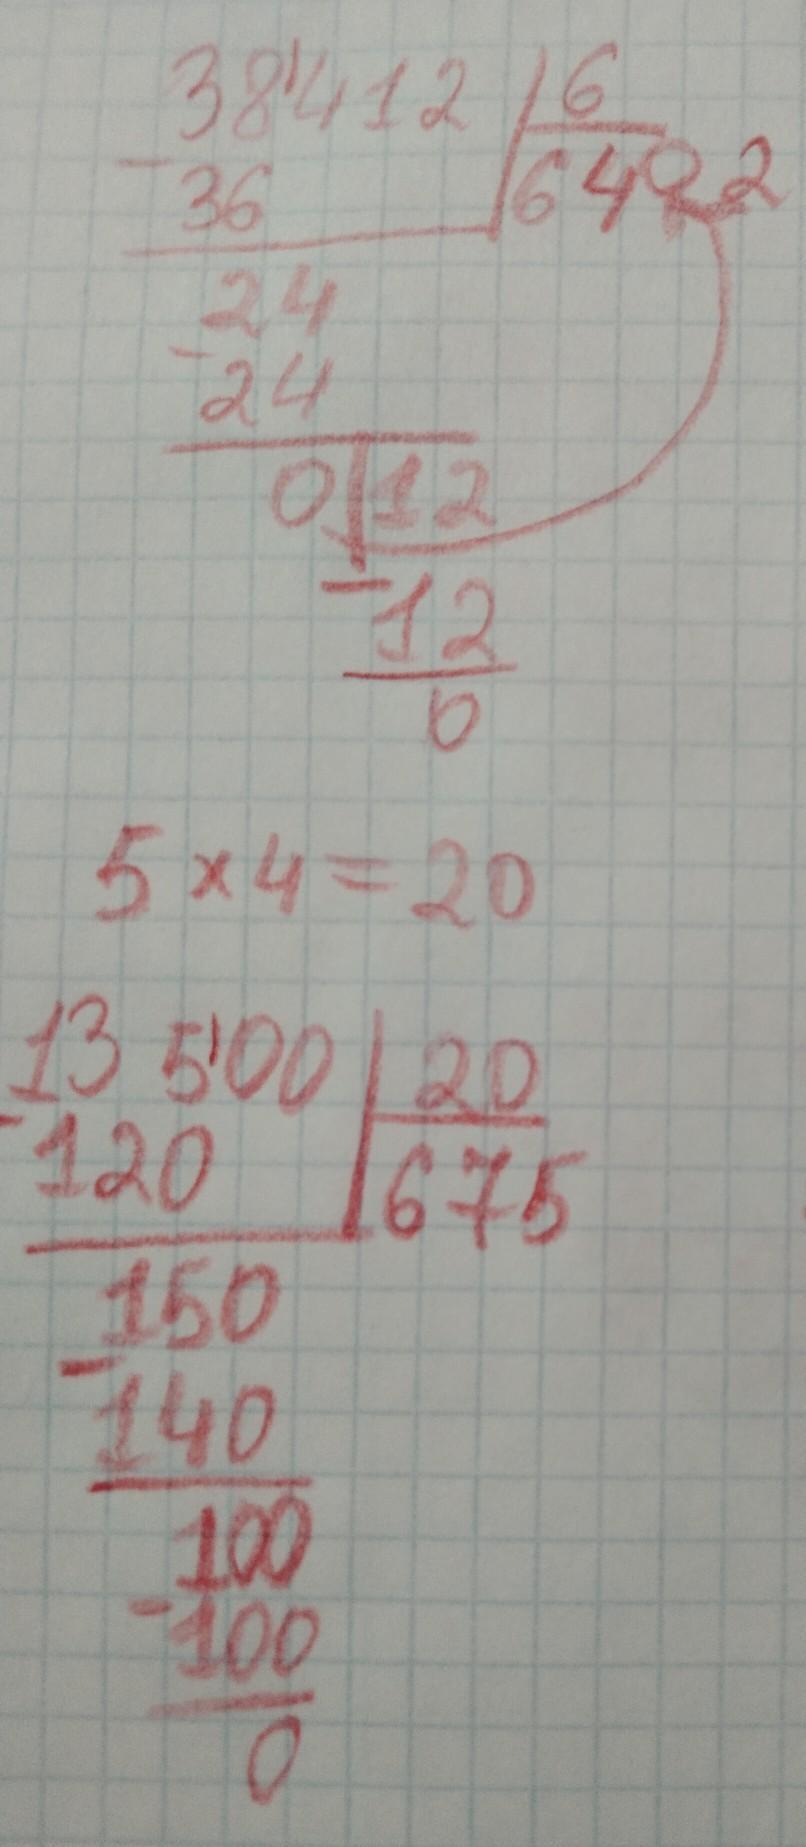 38'412 | 6
- 36 | 6402
24
- 24
0|12
- 12
0
5 × 4 = 20
13 5'00 | 20
- 120 | 675
150
- 140
100
- 100
0